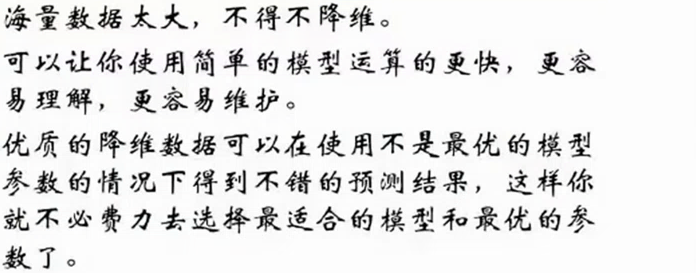 海量数据太大，不得不降维。
可以让你使用简单的模型运算的更快，更容
易理解，更容易维护。
优质的降维数据可以在使用不是最优的模型
参数的情况下得到不错的预测结果，这样你
就不必费力去选择最适合的模型和最优的参
数了。